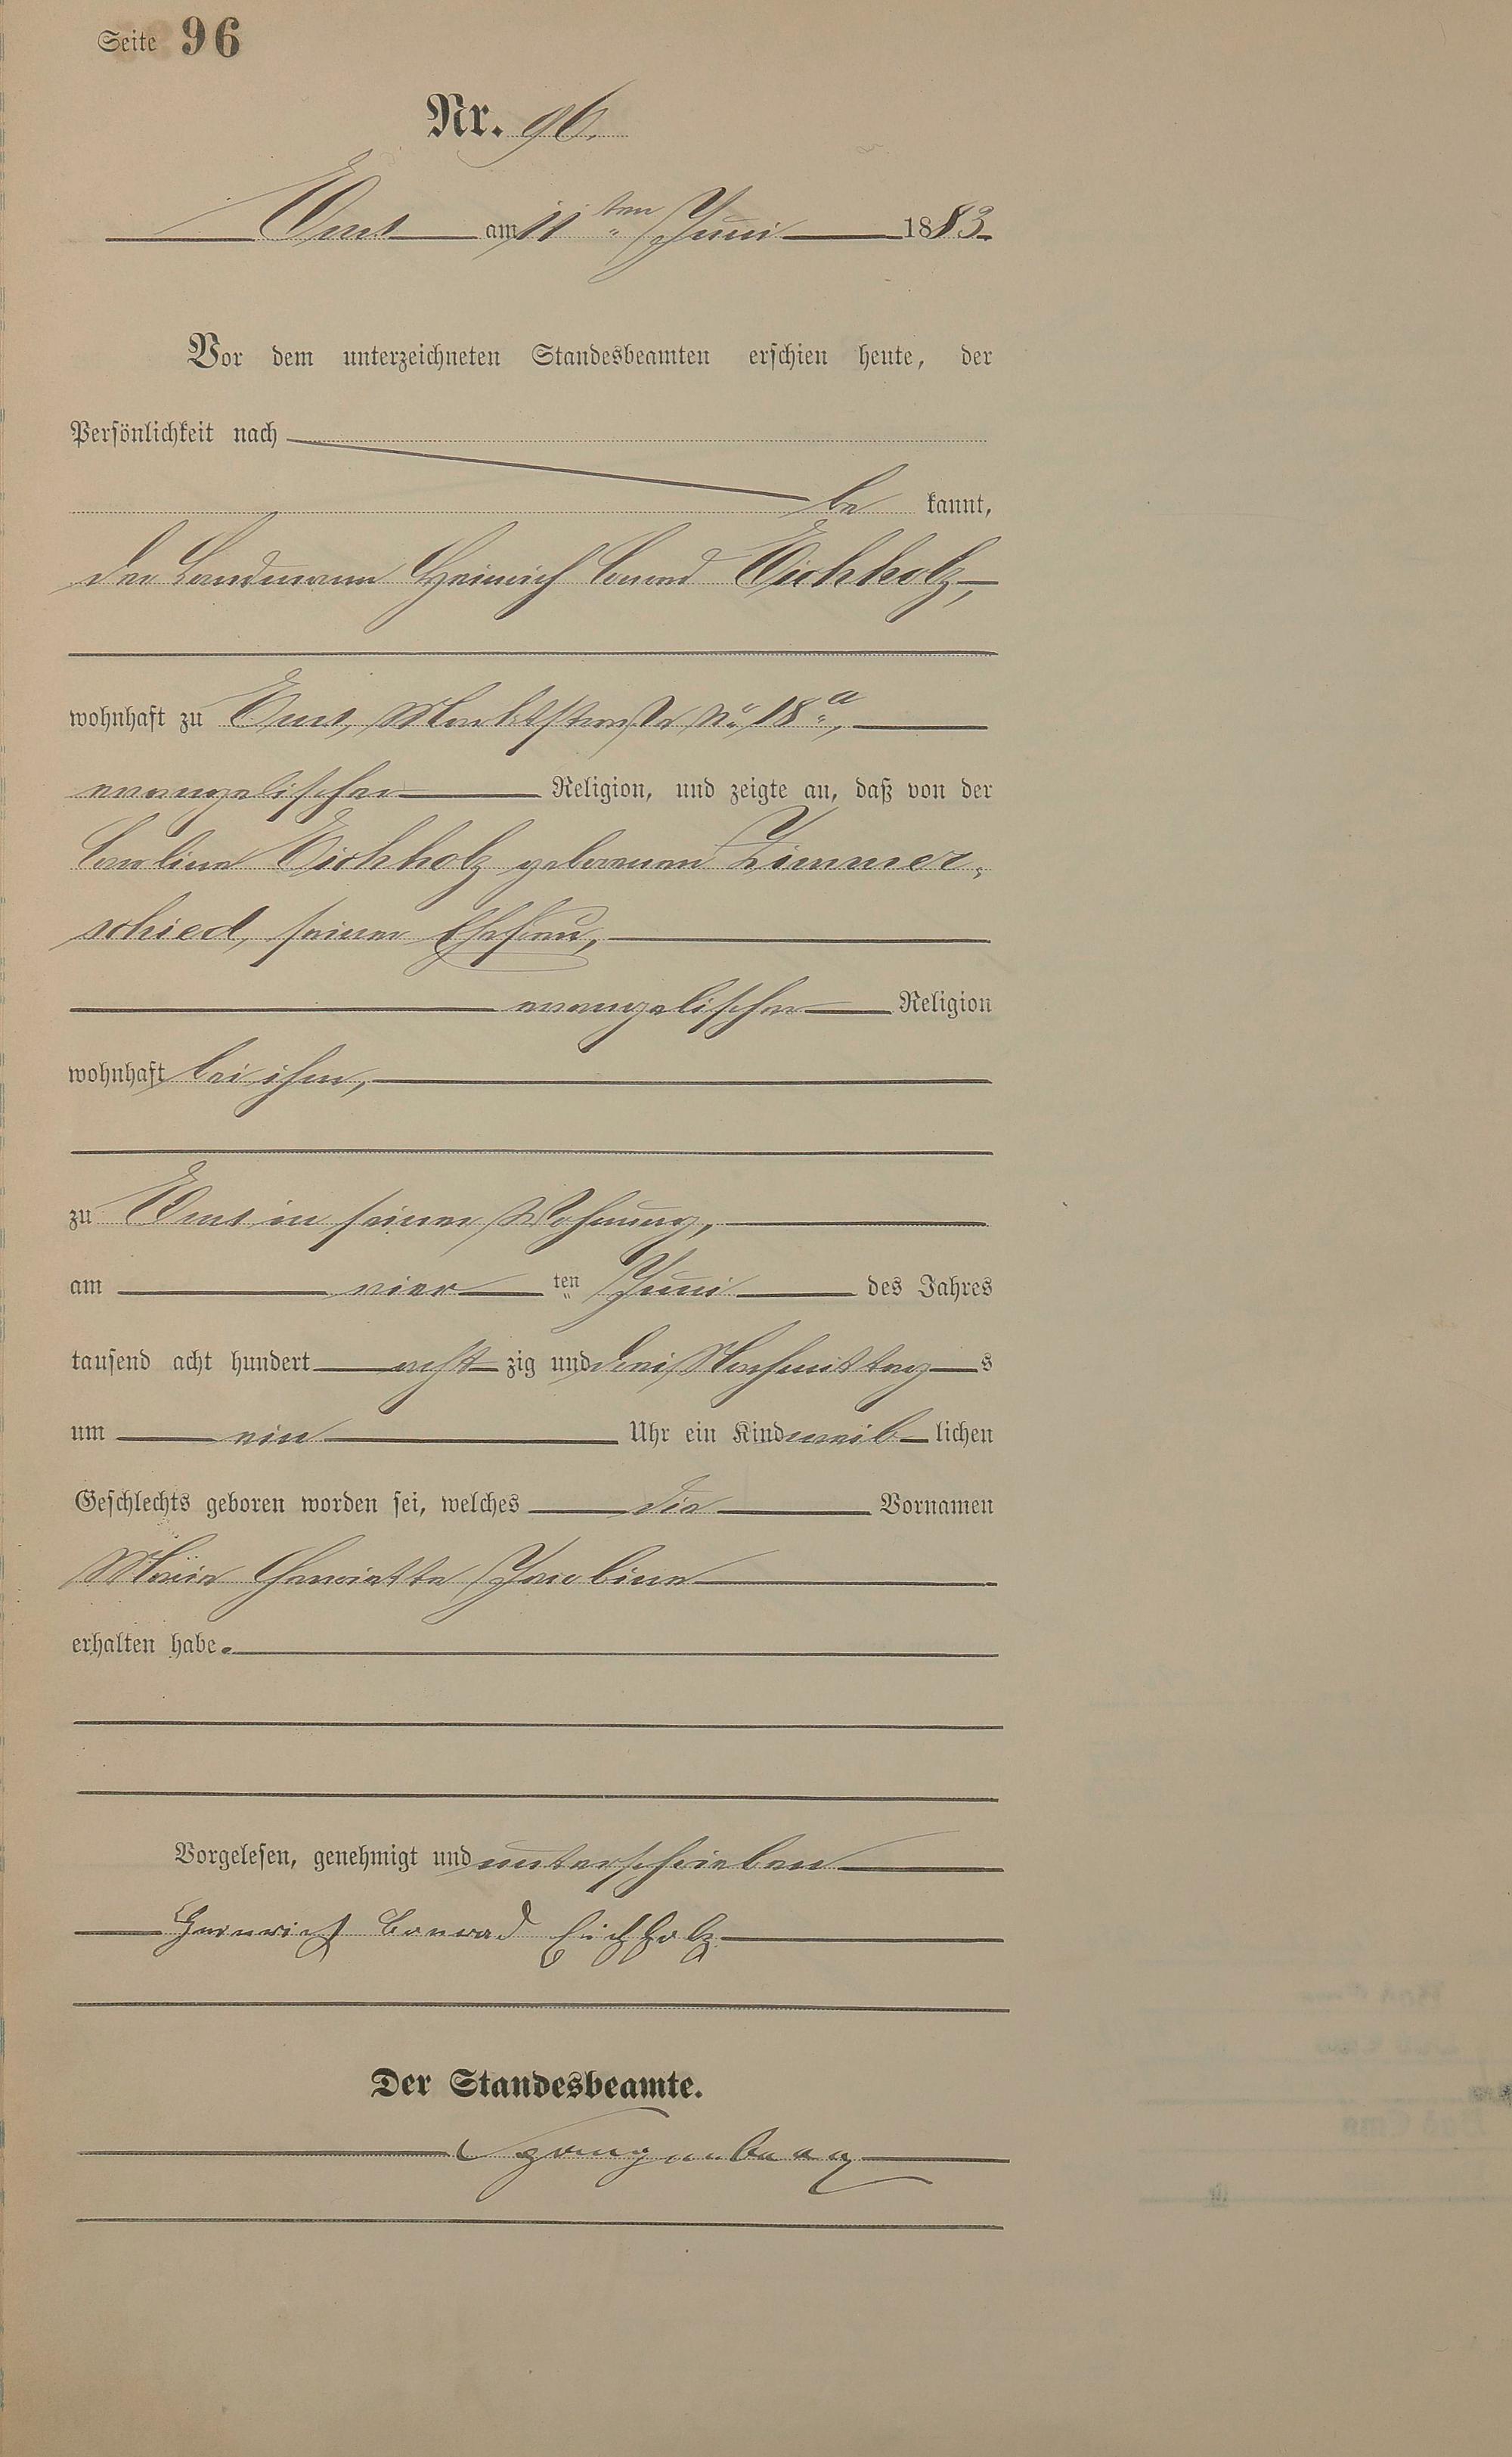 Seite 96
Nr. 96.
Ems am 11ten Juni 1883.
Vor dem unterzeichneten Standesbeamten erschien heute, der
Persönlichkeit nach
be kannt,
der Landmann Heinrich Conrad Eichholz,
wohnhaft zu Ems, Marktstraße No 18a,
evangelischer Religion, und zeigte an, daß von der
Caroline Eichholz geborenen Zimmer-
schied, seiner Ehefrau,
evangelischer Religion
wohnhaft bei ihm,
zu Ems in seiner Wohnung,
am vier ten Juni des Jahres
tausend acht hundert acht zig und drei Nachmittag s
um ein Uhr ein Kind weib lichen
Geschlechts geboren worden sei, welches die Vornamen
Henriette
erhalten habe.
Vorgelesen, genehmigt und unterschrieben
Heinrich Conrad Eichholz
Der Standesbeamte.